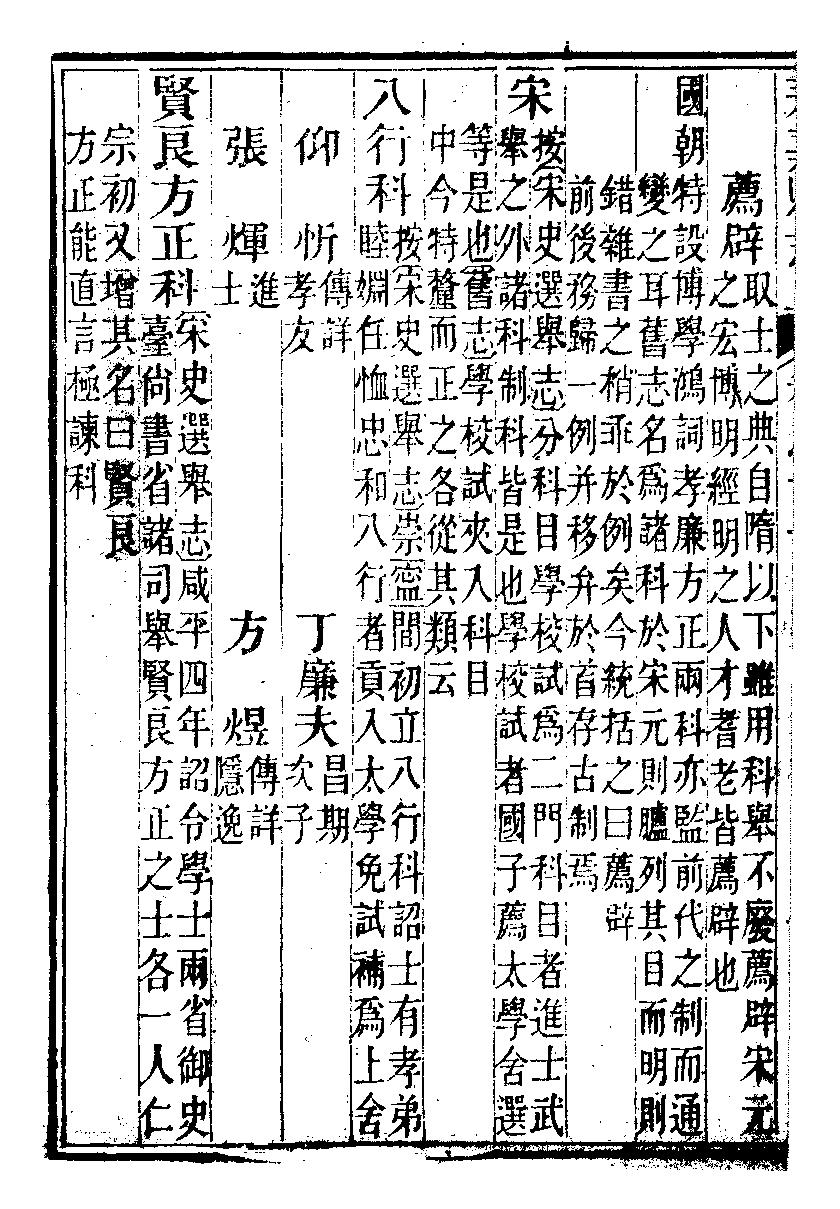 薦辟取士之典自隋以下雖用科舉不廢薦辟宋元
之宏博明經明之人才耆老皆薦辟也
國朝特設博學鴻詞孝廉方正兩科亦監前代之制而通
變之耳舊志名爲諸科於宋元則臚列其目而明則
錯雜書之稍乖於例矣今統括之曰薦辟
前後務歸一例并移弁於首存古制焉
宋按宋史選舉志分科目學校試爲二門科目者進士武
舉之外諸科制科皆是也學校試者國子薦太學舍選
等是也舊志學校試夾入科目
中今特釐而正之各從其類云
八行科按宋史選舉志崇寧間初立八行科詔士有孝弟
睦婣任恤忠和八行者貢入太學免試補爲上舍
仰忻傳詳孝友　丁廉夫昌期次子
張煇進士　方煜傳詳隱逸
賢良方正科宋史選舉志咸平四年詔令學士兩省御史
臺尚書省諸司舉賢良方正之士各一人仁
宗初又增其名曰賢良
方正能直言極諫科